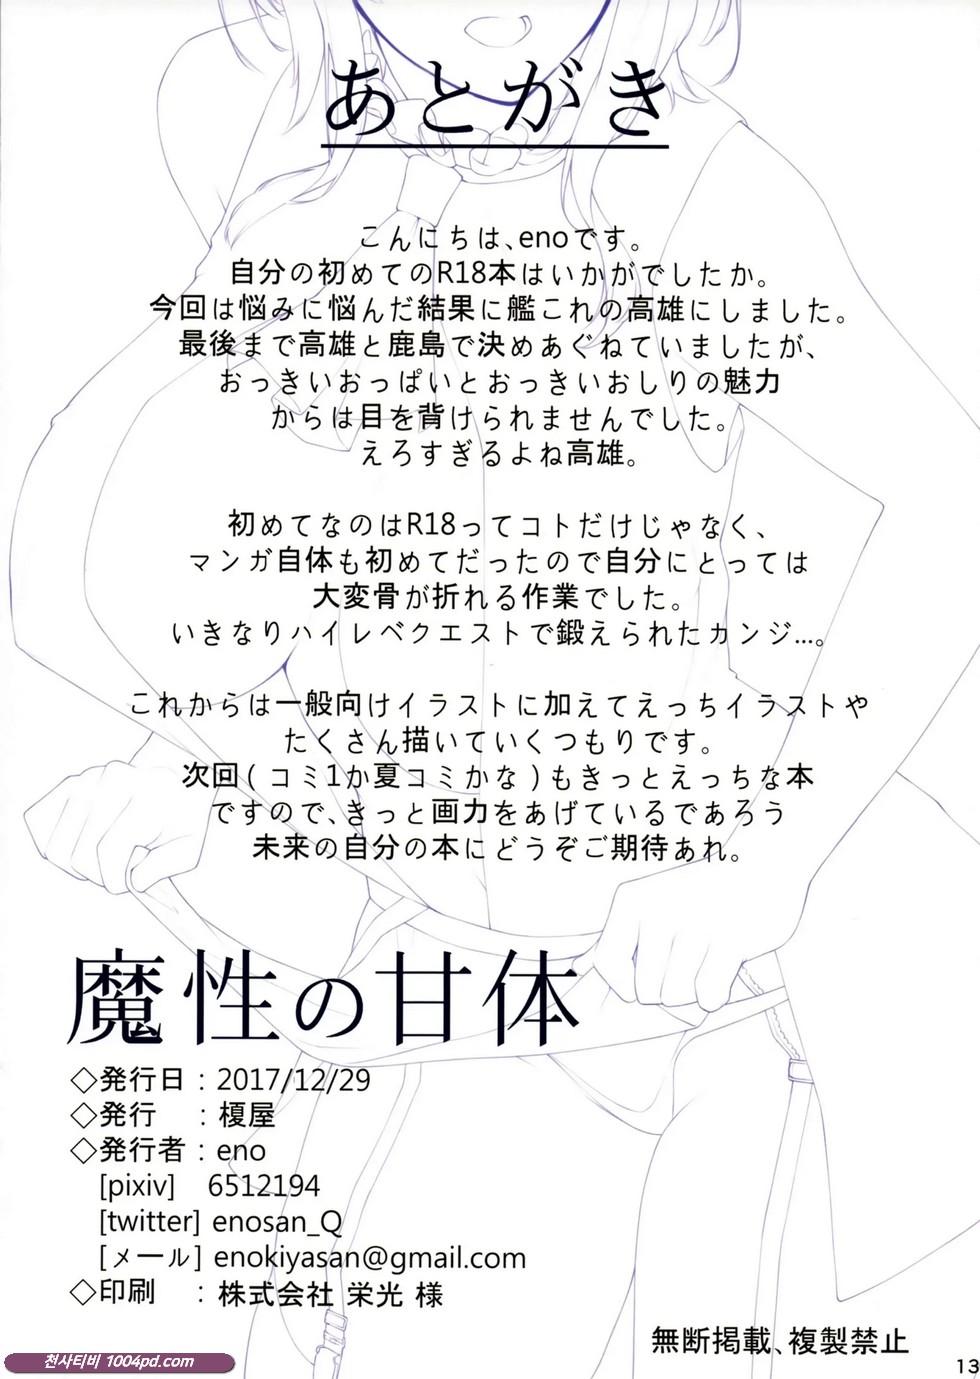 あとがき
こんにちは、enoです。
自分の初めてのR18本はいかがでしたか。
今回は悩みに悩んだ結果に艦これの高雄にしました。
最後まで高雄と鹿島で決めあぐねていましたが、
おっきいおっぱいとおっきいおしりの魅力
からは目を背けられませんでした。
えろすぎるよね高雄。
初めてなのはR18ってコトだけじゃなく、
マンガ自体も初めてだったので自分にとっては
大変骨が折れる作業でした。
いきなりハイレベクエストで鍛えられたカンジ…。
これからは一般向けイラストに加えてえっちイラストや
たくさん描いていくつもりです。
次回(コミ1か夏コミかな)もきっとえっちな本
ですので、きっと画力をあげているであろう
未来の自分の本にどうぞご期待あれ。
魔性の甘体
◇発行日：2017/12/29
◇発行　：榎屋
◇発行者：eno
[pixiv] 6512194
[twitter] enosan_Q
[メール] enokiyasan@gmail.com
◇印刷　：株式会社 栄光 様
無断掲載、複製禁止
천사티비 1004pd.com
13